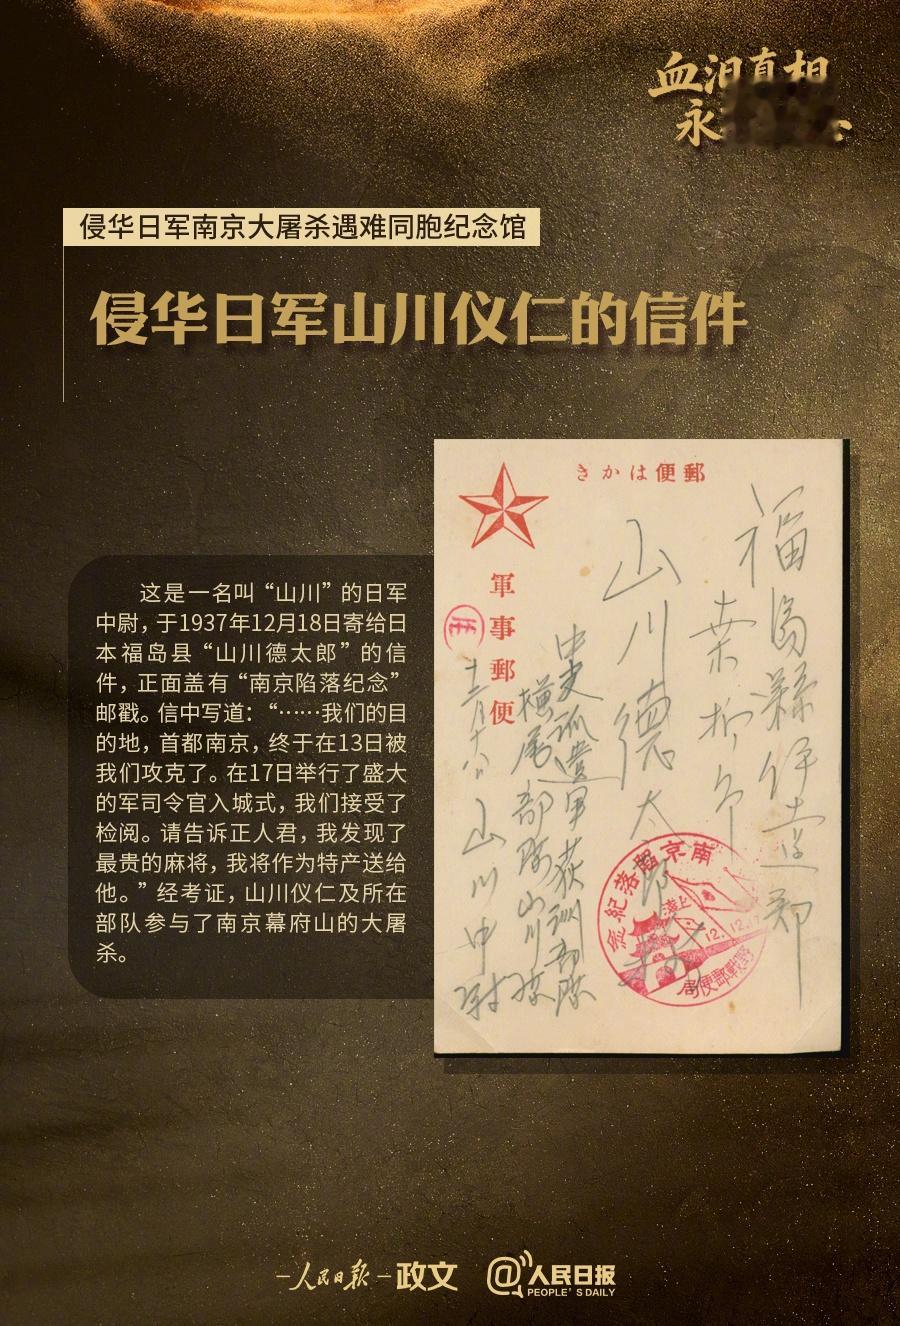 血泪真相
永
侵华日军南京大屠杀遇难同胞纪念馆
侵华日军山川仪仁的信件
这是一名叫“山川”的日军
中尉，于1937年12月18日寄给日
本福岛县“山川德太郎”的信
件，正面盖有“南京陷落纪念”
邮戳。信中写道：“……我们的目
的地，首都南京，终于在13日被
我们攻克了。在17日举行了盛大
的军司令官入城式，我们接受了
检阅。请告诉正人君，我发现了
最贵的麻将，我将作为特产送给
他。”经考证，山川仪仁及所在
部队参与了南京幕府山的大屠
杀。
郵便はかき
軍事郵便
福島縣伊達郡
山川德太郎
中支派遣軍荻洲部隊
十二月十八日 山川中尉
南京陷落紀念
上海
12.12.17
野戰郵便局
人民日报 政文
@人民日报
PEOPLE'S DAILY